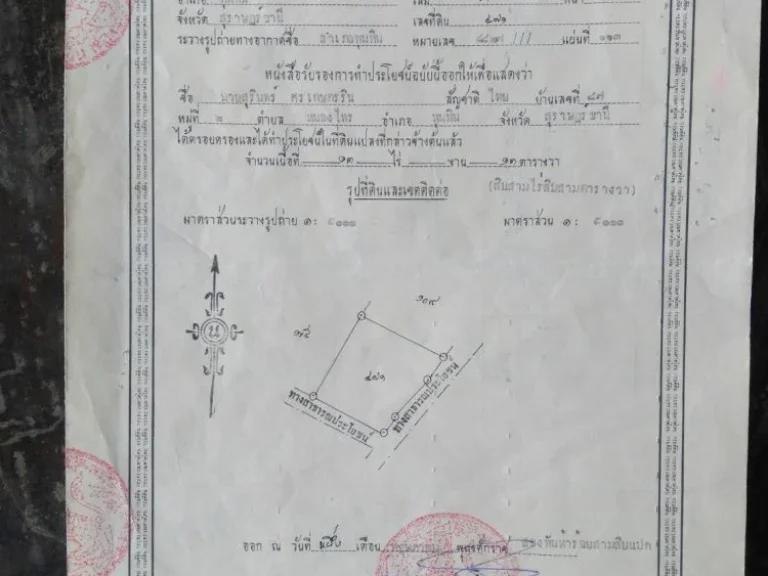 จังหวัด สุราษฎร์ธานี เลขที่ดิน ๔๗๑
ระวางรูปถ่ายทางอากาศชื่อ อำเภอพุนพิน หมายเลข ๔๘๒๗ III แผ่นที่ ๑๑๓
หนังสือรับรองการทำประโยชน์ฉบับนี้ออกให้เพื่อแสดงว่า
ชื่อ สัญชาติ ไทย บ้านเลขที่ ๘๗
หมู่ที่ ๒ ตำบล หนองไทร อำเภอ พุนพิน จังหวัด สุราษฎร์ธานี
ได้ครอบครองและได้ทำประโยชน์ในที่ดินแปลงที่กล่าวข้างต้นแล้ว
จำนวนเนื้อที่ ๑๓ ไร่ - งาน ๑๓ ตารางวา
รูปที่ดินและเขตติดต่อ (สิบสามไร่สิบสามตารางวา)
มาตราส่วนระวางรูปถ่าย ๑: มาตราส่วน ๑:
น
๔๗๑
ทางสาธารณประโยชน์
ทางสาธารณประโยชน์
ออก ณ วันที่ หนึ่ง เดือน พุทธศักราช สองพันห้าร้อยสามสิบแปด